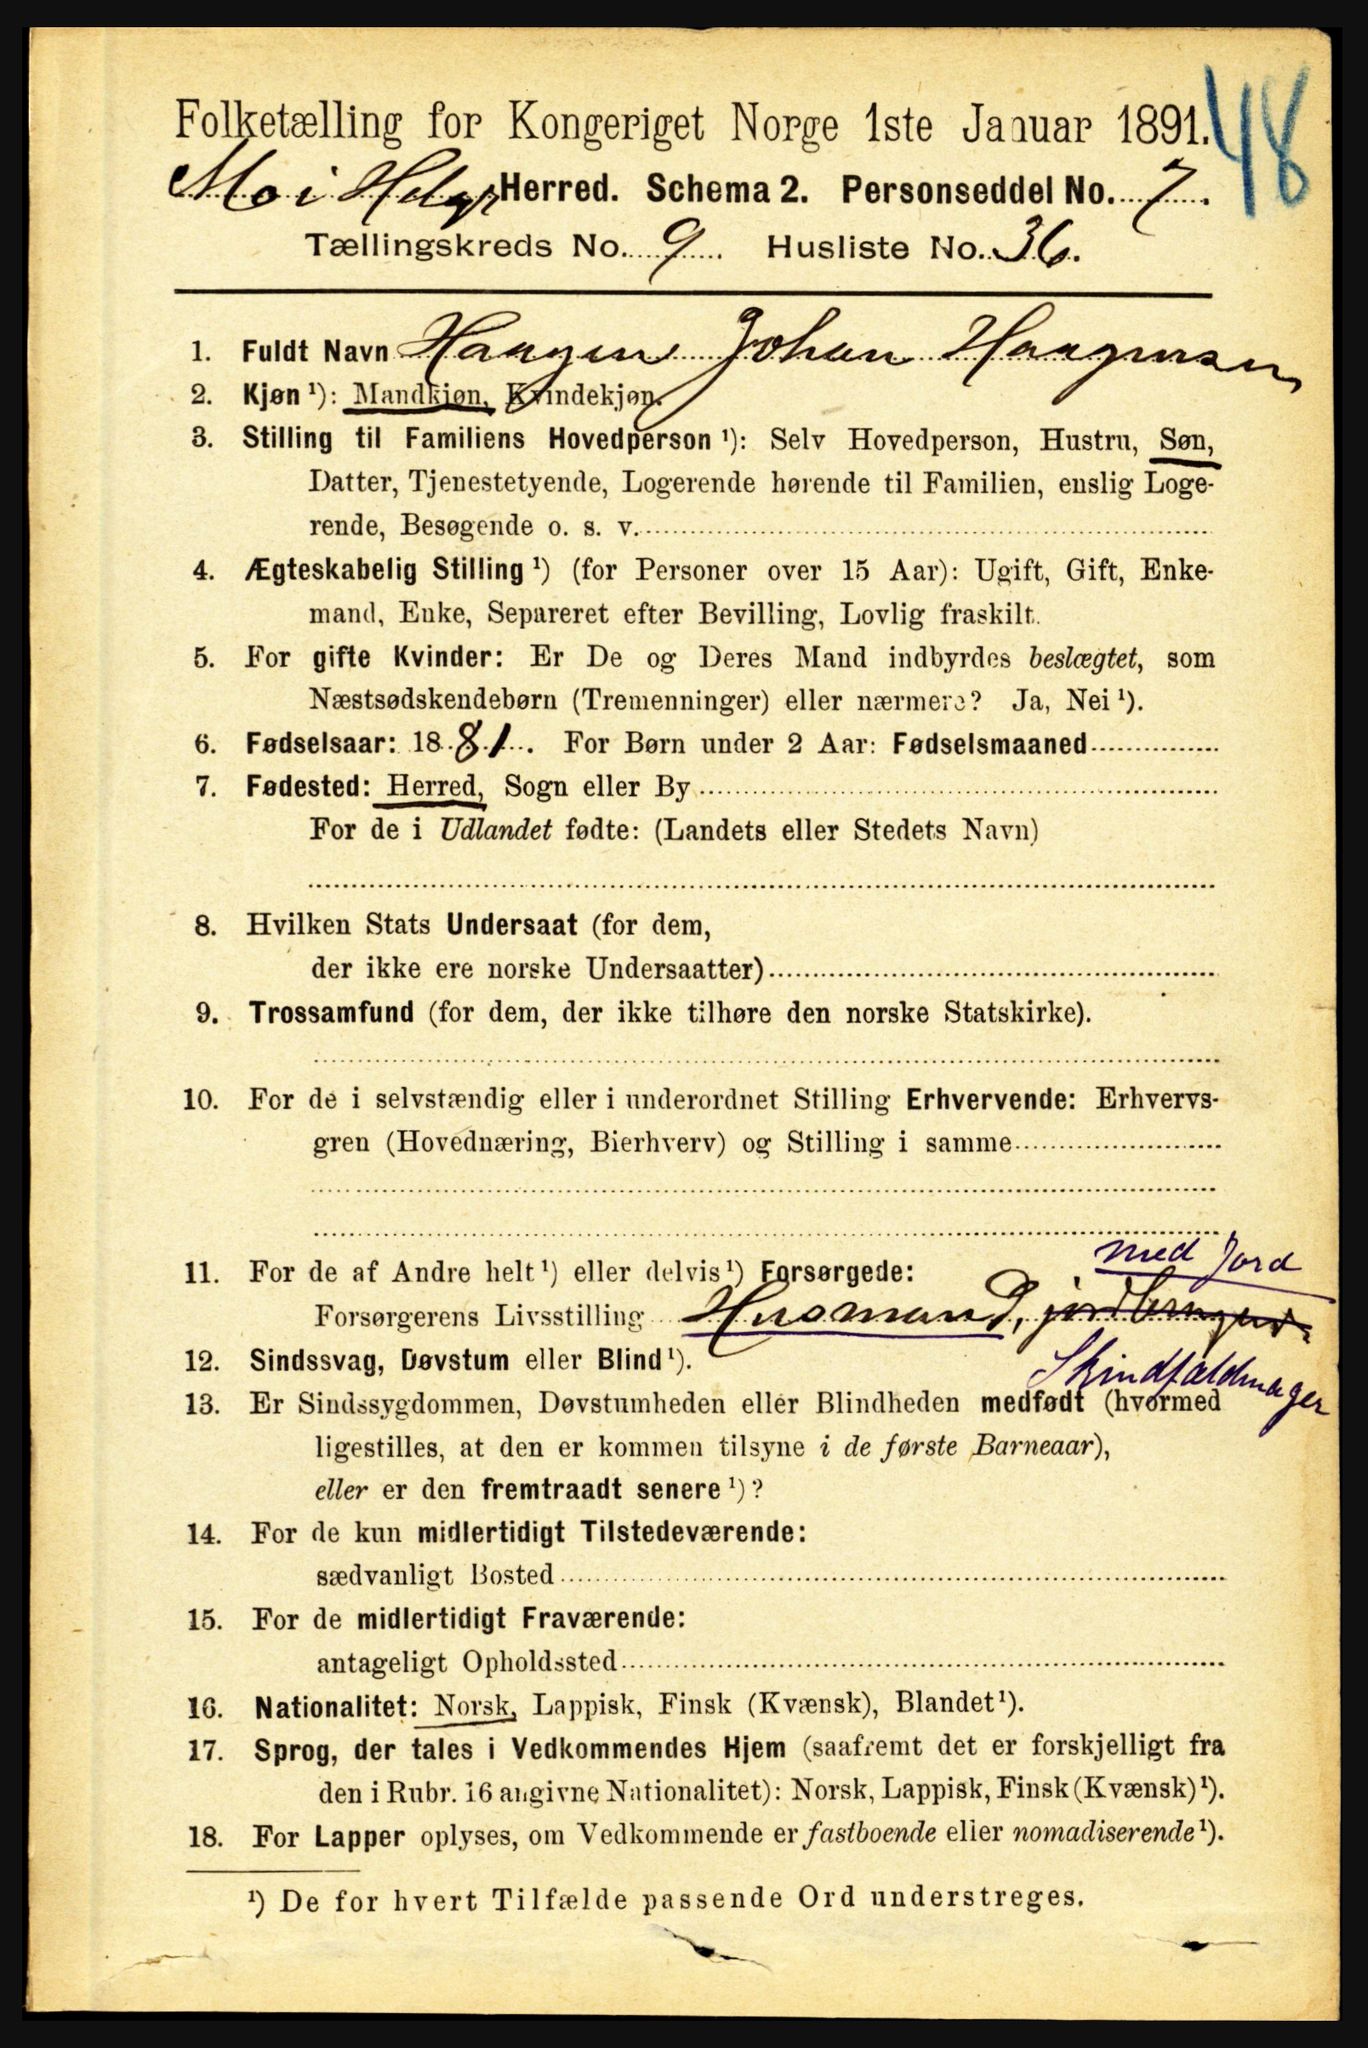 48
Folketælling for Kongeriget Norge 1ste Januar 1891.
Mo i Helg Herred. Schema 2. Personseddel No. 7.
Tællingskreds No. 9. Husliste No. 36.
1. Fuldt Navn Haagen Johan Haagensen
2. Kjøn ¹): Mandkjøn, Kvindekjøn.
3. Stilling til Familiens Hovedperson ¹): Selv Hovedperson, Hustru, Søn,
Datter, Tjenestetyende, Logerende hørende til Familien, enslig Loge-
rende, Besøgende o. s. v.
4. Ægteskabelig Stilling ¹) (for Personer over 15 Aar): Ugift, Gift, Enke-
mand, Enke, Separeret efter Bevilling, Lovlig fraskilt.
5. For gifte Kvinder: Er De og Deres Mand indbyrdes beslægtet, som
Næstsødskendebørn (Tremenninger) eller nærmere? Ja, Nei ¹).
6. Fødselsaar: 1881. For Børn under 2 Aar: Fødselsmaaned
7. Fødested: Herred, Sogn eller By
For de i Udlandet fødte: (Landets eller Stedets Navn)
8. Hvilken Stats Undersaat (for dem,
der ikke ere norske Undersaatter)
9. Trossamfund (for dem, der ikke tilhøre den norske Statskirke).
10. For de i selvstændig eller i underordnet Stilling Erhvervende: Erhvervs-
gren (Hovednæring, Bierhverv) og Stilling i samme
med Jord
11. For de af Andre helt ¹) eller delvis ¹) Forsørgede:
Forsørgerens Livsstilling Husmand,
Skindfældmager
12. Sindssvag, Døvstum eller Blind ¹).
13. Er Sindssygdommen, Døvstumheden eller Blindheden medfødt (hvormed
ligestilles, at den er kommen tilsyne i de første Barneaar),
eller er den fremtraadt senere ¹)?
14. For de kun midlertidigt Tilstedeværende:
sædvanligt Bosted
15. For de midlertidigt Fraværende:
antageligt Opholdssted
16. Nationalitet: Norsk, Lappisk, Finsk (Kvænsk), Blandet ¹).
17. Sprog, der tales i Vedkommendes Hjem (saafremt det er forskjelligt fra
den i Rubr. 16 angivne Nationalitet): Norsk, Lappisk, Finsk (Kvænsk) ¹).
18. For Lapper oplyses, om Vedkommende er fastboende eller nomadiserende ¹).
¹) De for hvert Tilfælde passende Ord understreges.